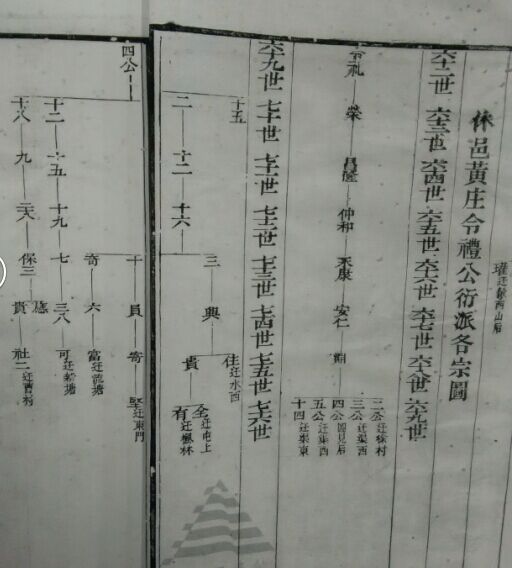 瓘迁歙西山后
休邑黃庄令禮公衍派各宗圖
六十二世 六十三世 六十四世 六十五世 六十六世 六十七世 六十八世 六十九世
二公迁徐村
令礼 榮 昌隆 仲和 釆康 安仁 三公迁渠西
四公图見后
五公迁渠西
十四迁渠東
六十九世 七十世 七十一世 七十二世 七十三世 七十四世 七十五世 七十六世
十五 住迁水西
三 興 貴 全迁屯上
二 十二 十六 有迁楓林
四公
十員 寄 堅迁東門
奇 六 富迁流塘
十二 十五 十九 七 三八 可迁新塘
十八 九 保三 貴 社二迁曹村